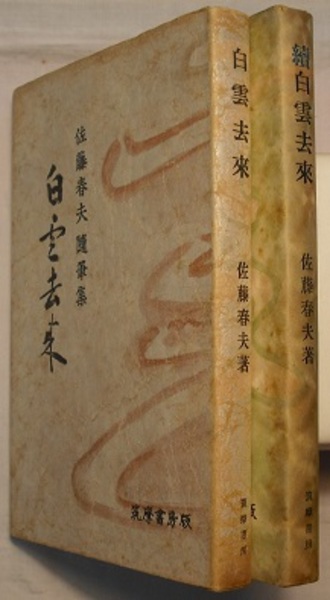 佐藤春夫隨筆集
白雲去来
筑摩書房版
白雲去來
佐藤春夫著
筑摩書房
續白雲去來
佐藤春夫著
筑摩書房
版